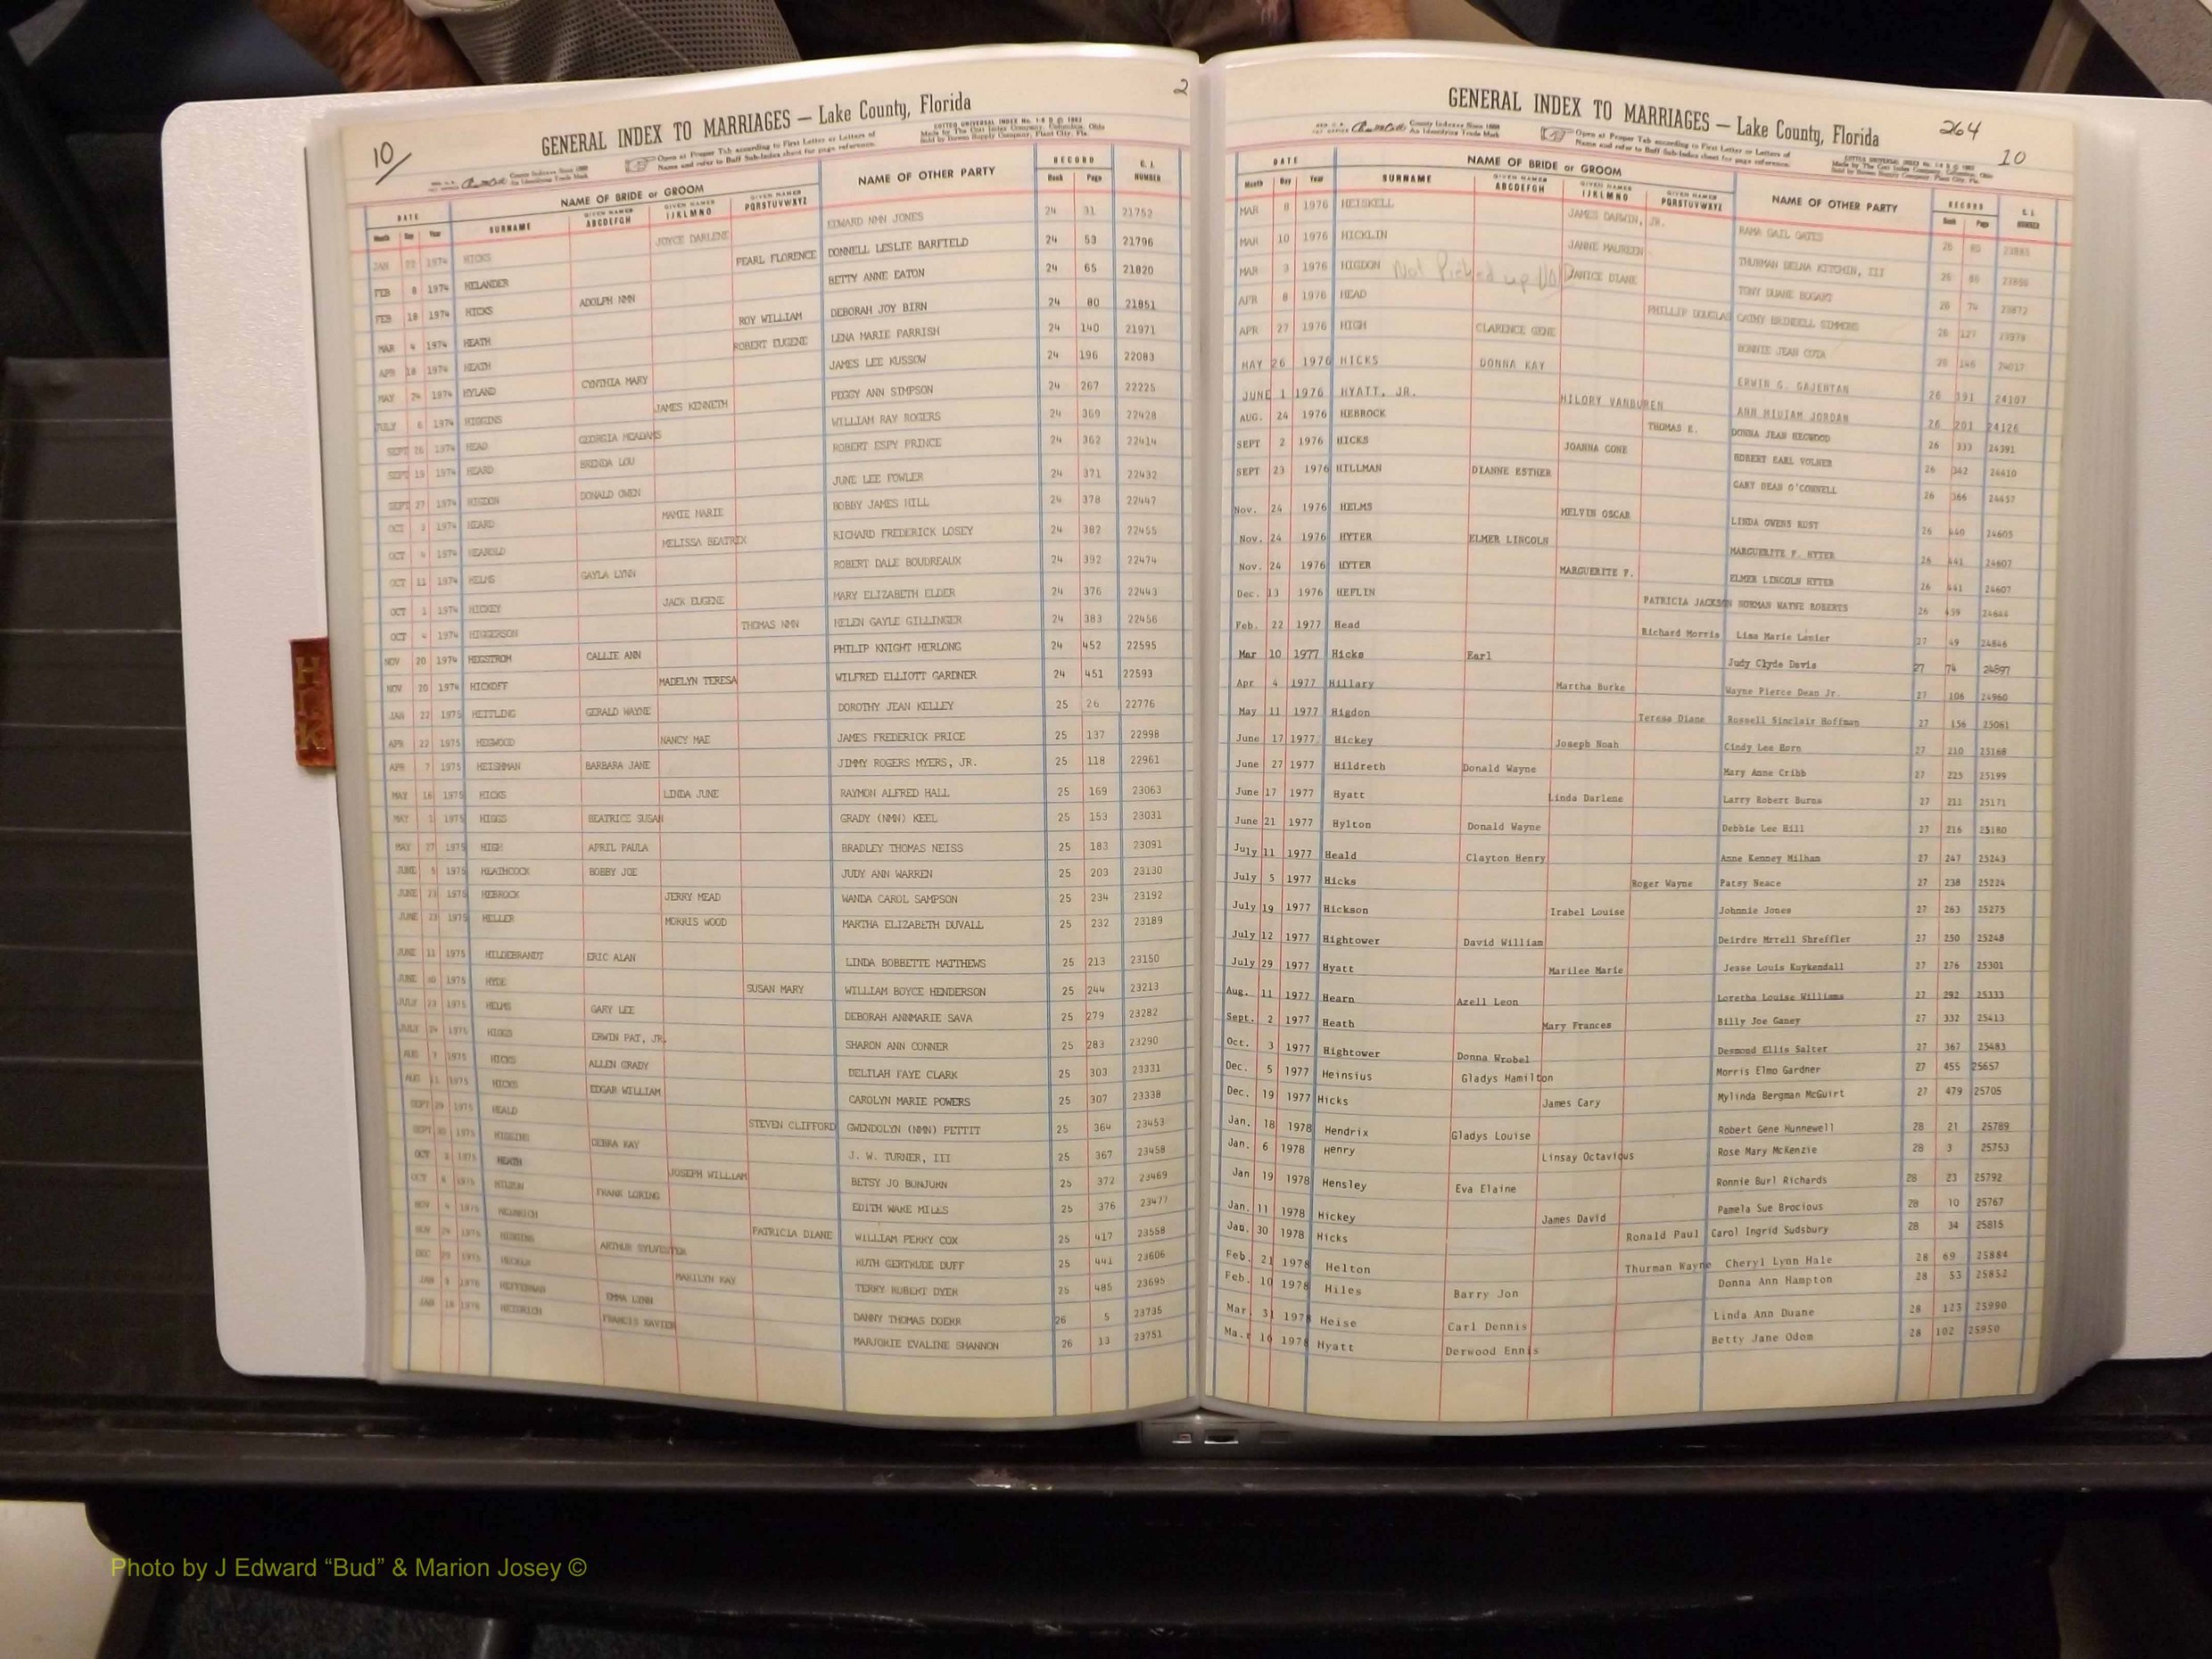 10/
2
GENERAL INDEX TO MARRIAGES — Lake County, Florida
COTTED UNIVERSAL INDEX
Open at Proper Tab according to First Letter or Letters of
Name and refer to Buff Sub-Index sheet for page reference.
DATE NAME OF BRIDE or GROOM NAME OF OTHER PARTY RECORD C. I.
Month Day Year SURNAME GIVEN NAMES ABCDEFGH GIVEN NAMES IJKLMNO GIVEN NAMES PQRSTUVWXYZ Book Page NUMBER
JAN 22 1974 HICKS JOYCE DARLENE EDWARD NMN JONES 24 31 21752
FEB 8 1974 HELANDER PEARL FLORENCE DONNELL LESLIE BARFIELD 24 53 21796
FEB 18 1974 HICKS ADOLPH NMN BETTY ANNE EATON 24 65 21820
MAR 4 1974 HEATH ROY WILLIAM DEBORAH JOY BIRN 24 80 21851
APR 18 1974 HEATH ROBERT EUGENE LENA MARIE PARRISH 24 140 21971
MAY 24 1974 HYLAND CYNTHIA MARY JAMES LEE KUSSOW 24 196 22083
JULY 6 1974 HIGGINS JAMES KENNETH PEGGY ANN SIMPSON 24 267 22225
SEPT 26 1974 HEAD GEORGIA MCADAMS WILLIAM RAY ROGERS 24 369 22428
SEPT 19 1974 HEARD BRENDA LOU ROBERT ESPY PRINCE 24 362 22414
SEPT 27 1974 HIGDON DONALD OWEN JUNE LEE FOWLER 24 371 22432
OCT 2 1974 HEARD MAMIE MARIE BOBBY JAMES HILL 24 378 22447
OCT 4 1974 HEAROLD MELISSA BEATRIX RICHARD FREDERICK LOSEY 24 382 22455
OCT 11 1974 HELMS GAYLA LYNN ROBERT DALE BOUDREAUX 24 392 22474
OCT 1 1974 HICKEY JACK EUGENE MARY ELIZABETH ELDER 24 376 22443
OCT 4 1974 HIGGERSON THOMAS NMN HELEN GAYLE GILLINGER 24 383 22456
NOV 20 1974 HEGSTROM CALLIE ANN PHILIP KNIGHT HERLONG 24 452 22595
NOV 20 1974 HICKOFF MADELYN TERESA WILFRED ELLIOTT GARDNER 24 451 22593
JAN 22 1975 HEITLING GERALD WAYNE DOROTHY JEAN KELLEY 25 26 22776
APR 22 1975 HEGWOOD NANCY MAE JAMES FREDERICK PRICE 25 137 22998
APR 7 1975 HEISHMAN BARBARA JANE JIMMY ROGERS MYERS, JR. 25 118 22961
MAY 16 1975 HICKS LINDA JUNE RAYMON ALFRED HALL 25 169 23063
MAY 1 1975 HIGGS BEATRICE SUSAN GRADY (NMN) KEEL 25 153 23031
MAY 27 1975 HIGH APRIL PAULA BRADLEY THOMAS NEISS 25 183 23091
JUNE 5 1975 HEATHCOCK BOBBY JOE JUDY ANN WARREN 25 203 23130
JUNE 23 1975 HEBROCK JERRY MEAD WANDA CAROL SAMPSON 25 234 23192
JUNE 23 1975 HELLER MORRIS WOOD MARTHA ELIZABETH DUVALL 25 232 23189
JUNE 11 1975 HILDEBRANDT ERIC ALAN LINDA BOBBETTE MATTHEWS 25 213 23150
JUNE 30 1975 HYDE SUSAN MARY WILLIAM BOYCE HENDERSON 25 244 23213
JULY 23 1975 HELMS GARY LEE DEBORAH ANNMARIE SAVA 25 279 23282
JULY 24 1975 HIGGS ERWIN PAT, JR. SHARON ANN CONNER 25 283 23290
AUG 7 1975 HICKS ALLEN GRADY DELILAH FAYE CLARK 25 303 23331
AUG 11 1975 HICKS EDGAR WILLIAM CAROLYN MARIE POWERS 25 307 23338
SEPT 29 1975 HEALD STEVEN CLIFFORD GWENDOLYN (NMN) PETTIT 25 364 23453
SEPT 30 1975 HIGGINS DEBRA KAY J. W. TURNER, III 25 367 23458
OCT 1975 HEATH JOSEPH WILLIAM BETSY JO BONJORN 25 372 23469
OCT 1975 FRANK LORING EDITH WAKE MILES 25 376 23477
NOV 4 1975 PATRICIA DIANE WILLIAM PERRY COX 25 417 23558
NOV 1975 HIGGINS ARTHUR SYLVESTER RUTH GERTRUDE DUFF 25 441 23606
DEC 1975 MARILYN KAY TERRY ROBERT DYER 25 485 23695
JAN 1976 HEFFERNAN EMMA LYNN DANNY THOMAS DOERR 26 5 23735
JAN 1976 FRANCIS XAVIER MARJORIE EVALINE SHANNON 26 13 23751
GENERAL INDEX TO MARRIAGES — Lake County, Florida
264
10
Open at Proper Tab according to First Letter or Letters of
Name and refer to Buff Sub-Index sheet for page reference.
DATE NAME OF BRIDE or GROOM NAME OF OTHER PARTY RECORD C. I.
Month Day Year SURNAME GIVEN NAMES ABCDEFGH GIVEN NAMES IJKLMNO GIVEN NAMES PQRSTUVWXYZ Book Page NUMBER
MAR 8 1976 HEISKELL JAMES DARWIN, JR. RAMA GAIL GATES 26
MAR 10 1976 HICKLIN JANNE MAUREEN THURMAN KITCHIN, III 26
MAR 3 1976 HIGDON Not Picked up JANICE DIANE TONY DUANE BOGART 26 74 23872
APR 8 1976 HEAD PHILLIP DOUGLAS CATHY SIMMONS 26 127
APR 27 1976 HIGH CLARENCE GENE BONNIE JEAN COTA 26 146 24017
MAY 26 1976 HICKS DONNA KAY ERWIN G. GAJENTAN 26 191 24107
JUNE 1 1976 HYATT, JR. HILORY VANBUREN ANN MIRIAM JORDAN 26 201 24126
AUG. 24 1976 HEBROCK THOMAS E. DONNA JEAN HEGWOOD 26 333 24391
SEPT 2 1976 HICKS JOANNA CONE ROBERT EARL VOLNER 26 342 24410
SEPT 23 1976 HILLMAN DIANNE ESTHER GARY DEAN O'CONNELL 26 366 24457
Nov. 24 1976 HELMS MELVIN OSCAR LINDA OWENS RUST 26 440 24605
Nov. 24 1976 HYTER ELMER LINCOLN MARGUERITE F. HYTER 26 441 24607
Nov. 24 1976 HYTER MARGUERITE F. ELMER LINCOLN HYTER 26 441 24607
Dec. 13 1976 HEFLIN PATRICIA JACKSON NORMAN WAYNE ROBERTS 26 459 24644
Feb. 22 1977 Head Richard Morris Lisa Marie Lanier 27 49 24846
Mar 10 1977 Hicks Earl Judy Clyde Davis 27 74 24897
Apr 4 1977 Hillary Martha Burke Wayne Pierce Dean Jr. 27 106 24960
May 11 1977 Higdon Teresa Diane Russell Sinclair Hoffman 27 156 25061
June 17 1977 Hickey Joseph Noah Cindy Lee Horn 27 210 25168
June 27 1977 Hildreth Donald Wayne Mary Anne Cribb 27 225 25199
June 17 1977 Hyatt Linda Darlene Larry Robert Burns 27 211 25171
June 21 1977 Hylton Donald Wayne Debbie Lee Hill 27 216 25180
July 11 1977 Heald Clayton Henry Anne Kenney Milham 27 247 25243
July 5 1977 Hicks Roger Wayne Patsy Neace 27 238 25224
July 19 1977 Hickson Irabel Louise Johnnie Jones 27 263 25275
July 12 1977 Hightower David William Deirdre Mrrell Shreffler 27 250 25248
July 29 1977 Hyatt Marilee Marie Jesse Louis Kuykendall 27 276 25301
Aug. 11 1977 Hearn Azell Leon Loretha Louise Williams 27 292 25333
Sept. 2 1977 Heath Mary Frances Billy Joe Ganey 27 332 25413
Oct. 3 1977 Hightower Donna Wrobel Desmond Ellis Salter 27 367 25483
Dec. 5 1977 Heinsius Gladys Hamilton Morris Elmo Gardner 27 455 25657
Dec. 19 1977 Hicks James Cary Mylinda Bergman McGuirt 27 479 25705
Jan. 18 1978 Hendrix Gladys Louise Robert Gene Hunnewell 28 21 25789
Jan. 6 1978 Henry Linsay Octavious Rose Mary McKenzie 28 3 25753
Jan 19 1978 Hensley Eva Elaine Ronnie Burl Richards 28 23 25792
Jan. 11 1978 Hickey James David Pamela Sue Brocious 28 10 25767
Jan. 30 1978 Hicks Ronald Paul Carol Ingrid Sudsbury 28 34 25815
Feb. 21 1978 Helton Thurman Wayne Cheryl Lynn Hale 28 69 25884
Feb. 10 1978 Hiles Barry Jon Donna Ann Hampton 28 53 25852
Mar. 31 1978 Heise Carl Dennis Linda Ann Duane 28 123 25990
Mar 10 1978 Hyatt Derwood Ennis Betty Jane Odom 28 102 25950
H
I
K
Photo by J Edward “Bud” & Marion Josey ©